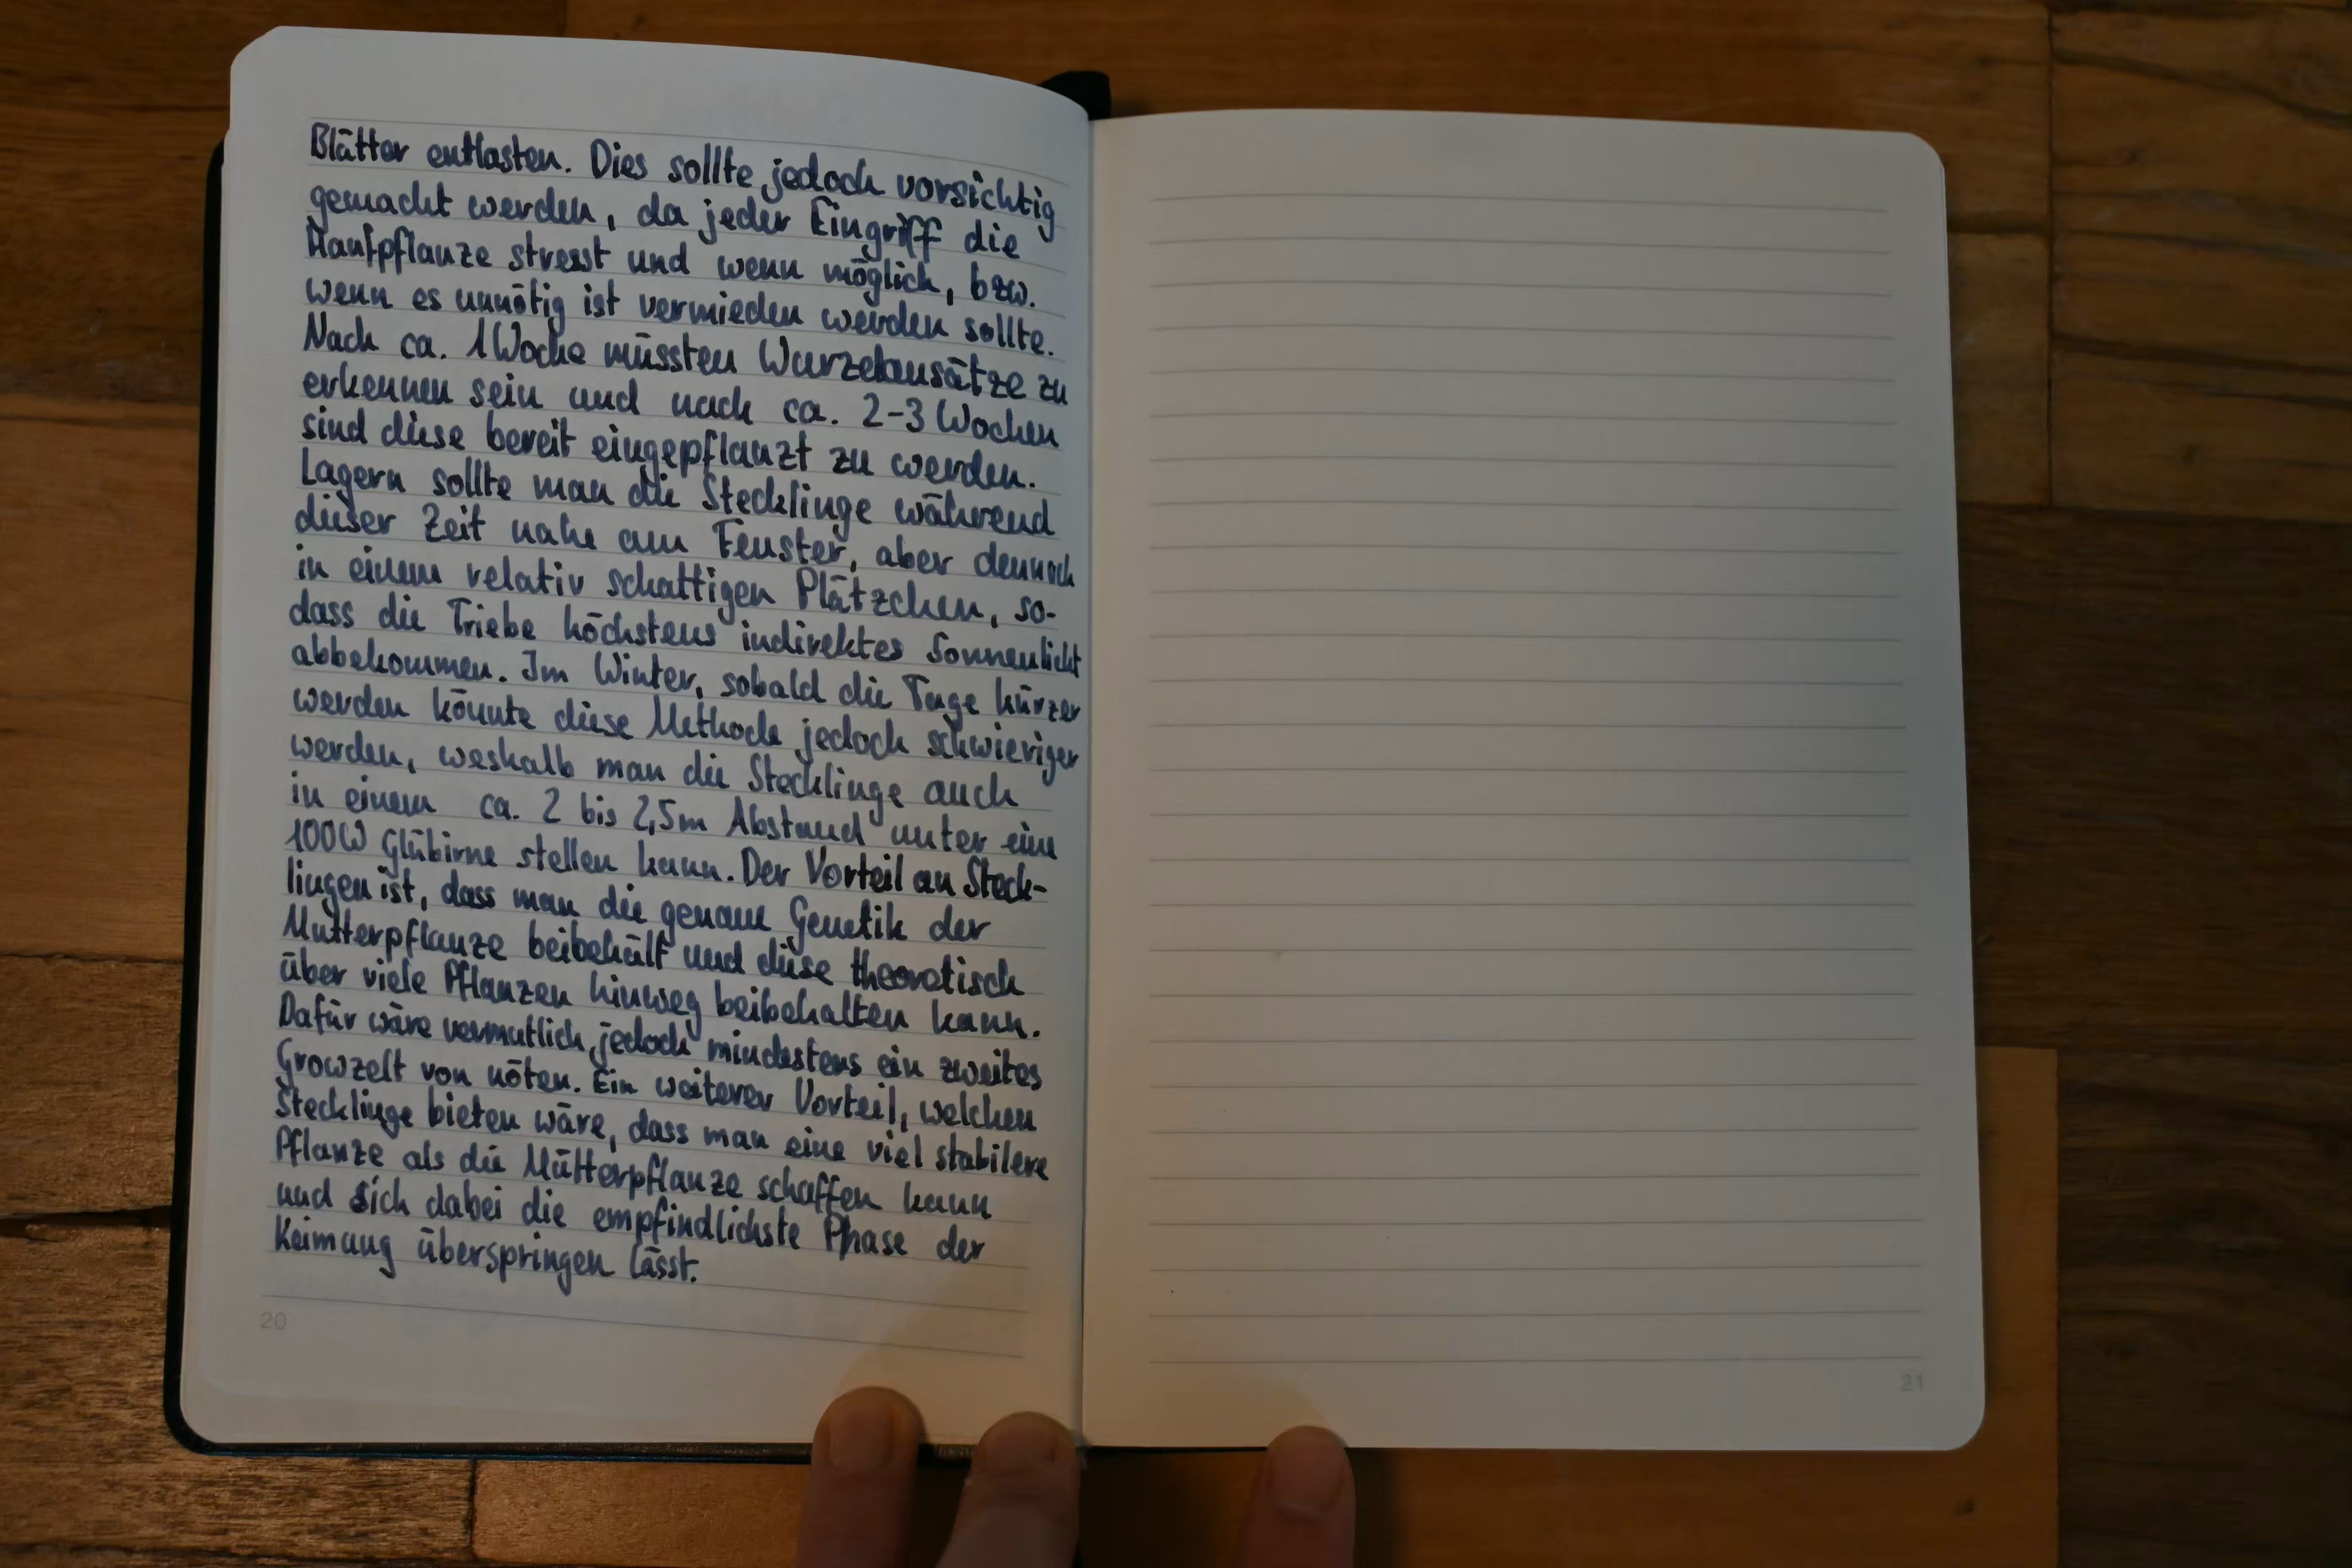 Blätter entlasten. Dies sollte jedoch vorsichtig
gemacht werden, da jeder Eingriff die
Hanfpflanze stresst und wenn möglich, bzw.
wenn es unnötig ist vermieden werden sollte.
Nach ca. 1 Woche müssten Wurzelansätze zu
erkennen sein und nach ca. 2-3 Wochen
sind diese bereit eingepflanzt zu werden.
Lagern sollte man die Stecklinge während
dieser Zeit nahe am Fenster, aber dennoch
in einem relativ schattigen Plätzchen, so-
dass die Triebe höchstens indirektes Sonnenlicht
abbekommen. Im Winter, sobald die Tage kürzer
werden könnte diese Methode jedoch schwieriger
werden, weshalb man die Stecklinge auch
in einem ca. 2 bis 2,5m Abstand unter eine
100W Glübirne stellen kann. Der Vorteil an Steck-
lingen ist, dass man die genaue Genetik der
Mutterpflanze beibehält und diese theoretisch
über viele Pflanzen hinweg beibehalten kann.
Dafür wäre vermutlich jedoch mindestens ein zweites
Growzelt von nöten. Ein weiterer Vorteil, welchen
Stecklinge bieten wäre, dass man eine viel stabilere
Pflanze als die Mütterpflanze schaffen kann
und sich dabei die empfindlichste Phase der
Keimung überspringen lässt.
20
21